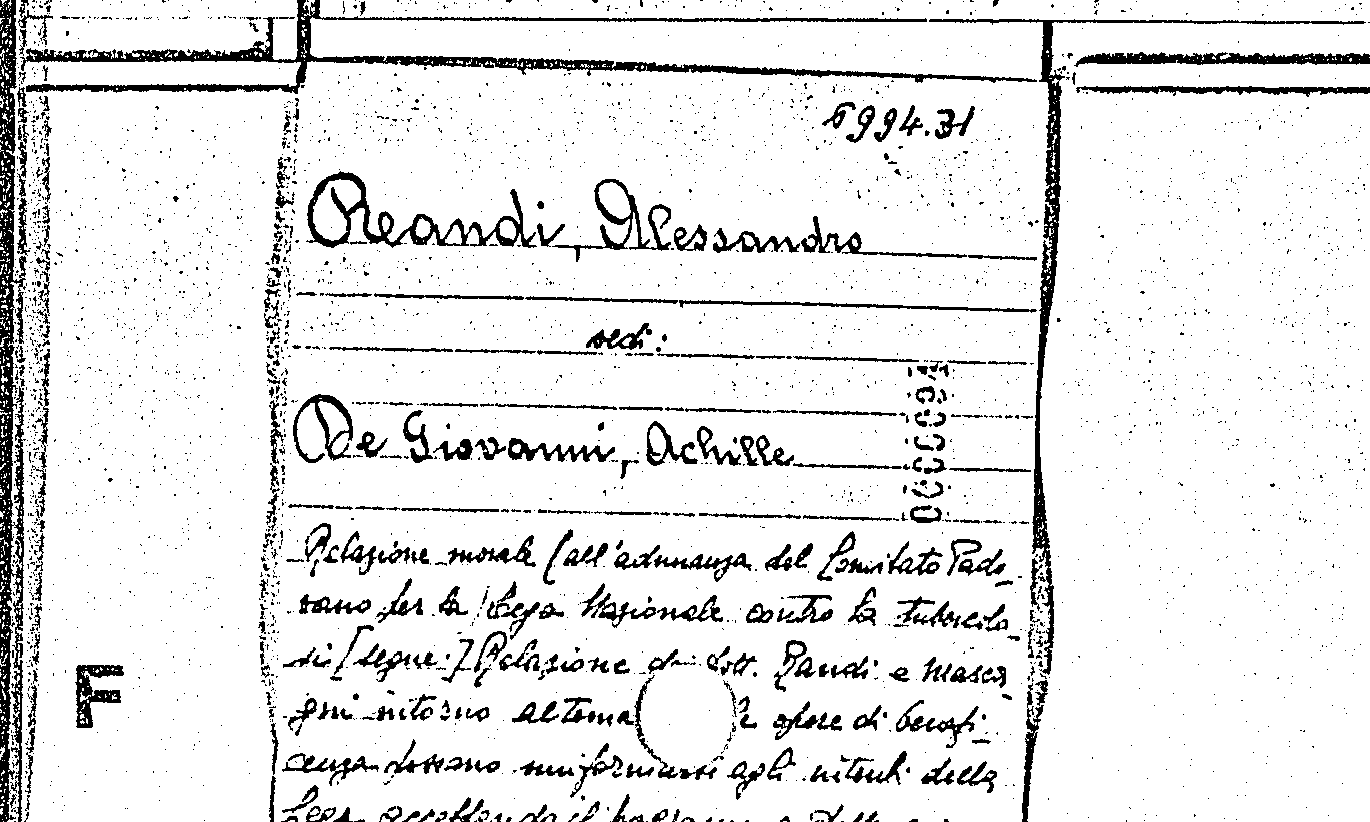 6994.31
Reandi, Alessandro
vedi:
De Giovanni, Achille
Relazione morale (all'adunanza del Comitato Pado-
vano per la Lega Nazionale contro la tubercolo-
si [segue:] Relazione dott. Randi e Masca-
gni intorno al tema opere di benefi-
cenza possano uniformarsi agli intenti della
Lega accettando il
F